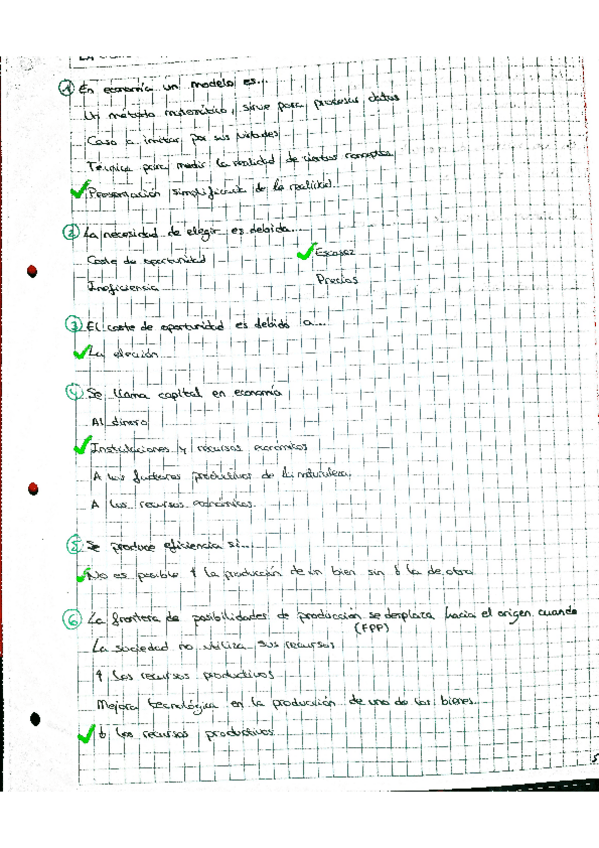 ① En economía un modelo es...
Un método matemático, sirve para procesar datos
Caso a imitar por sus virtudes
Técnica para medir la realidad de ciertos conceptos
✓ Presentación simplificada de la realidad
② La necesidad de elegir es debida...
Coste de oportunidad ✓ Escasez
Ineficiencia Precios
③ El coste de oportunidad es debido a...
✓ La elección
④ Se llama capital en economía
Al dinero
✓ Instalaciones y recursos económicos
A los factores productivos de la naturaleza
A los recursos económicos
⑤ Se produce eficiencia si...
✓ No es posible ↑ la producción de un bien sin ↓ la de otro
⑥ La frontera de posibilidades de producción se desplaza hacia el origen cuando
(FPP)
La sociedad no utiliza sus recursos
↑ los recursos productivos
Mejora tecnológica en la producción de uno de los bienes
✓ ↓ los recursos productivos